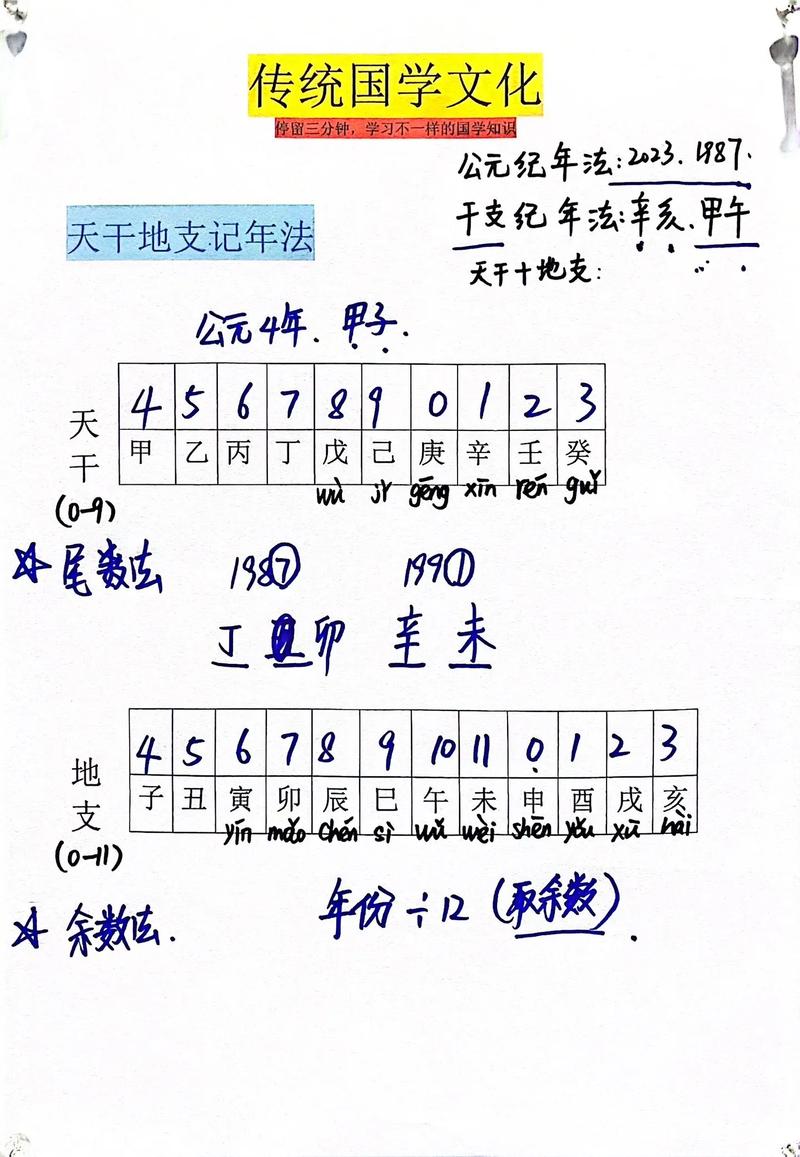 传统国学文化
停留三分钟，学习不一样的国学知识
公元纪年法:2023.1987.
干支纪年法:辛亥.甲午
天干地支记年法
天干十地支:
公元4年.甲子.
4 5 6 7 8 9 0 1 2 3
天干
甲 乙 丙 丁 戊 己 庚 辛 壬 癸
wù jǐ gēng xīn rén guǐ
(0-9)
☆ 尾数法 198⑦ 199①
丁 卯 辛 未
4 5 6 7 8 9 10 11 0 1 2 3
地支
子 丑 寅 卯 辰 巳 午 未 申 酉 戌 亥
yín mǎo chén sì wǔ wèi shēn yǒu xū hài
(0-11)
年份÷12(取余数).
☆ 余数法.